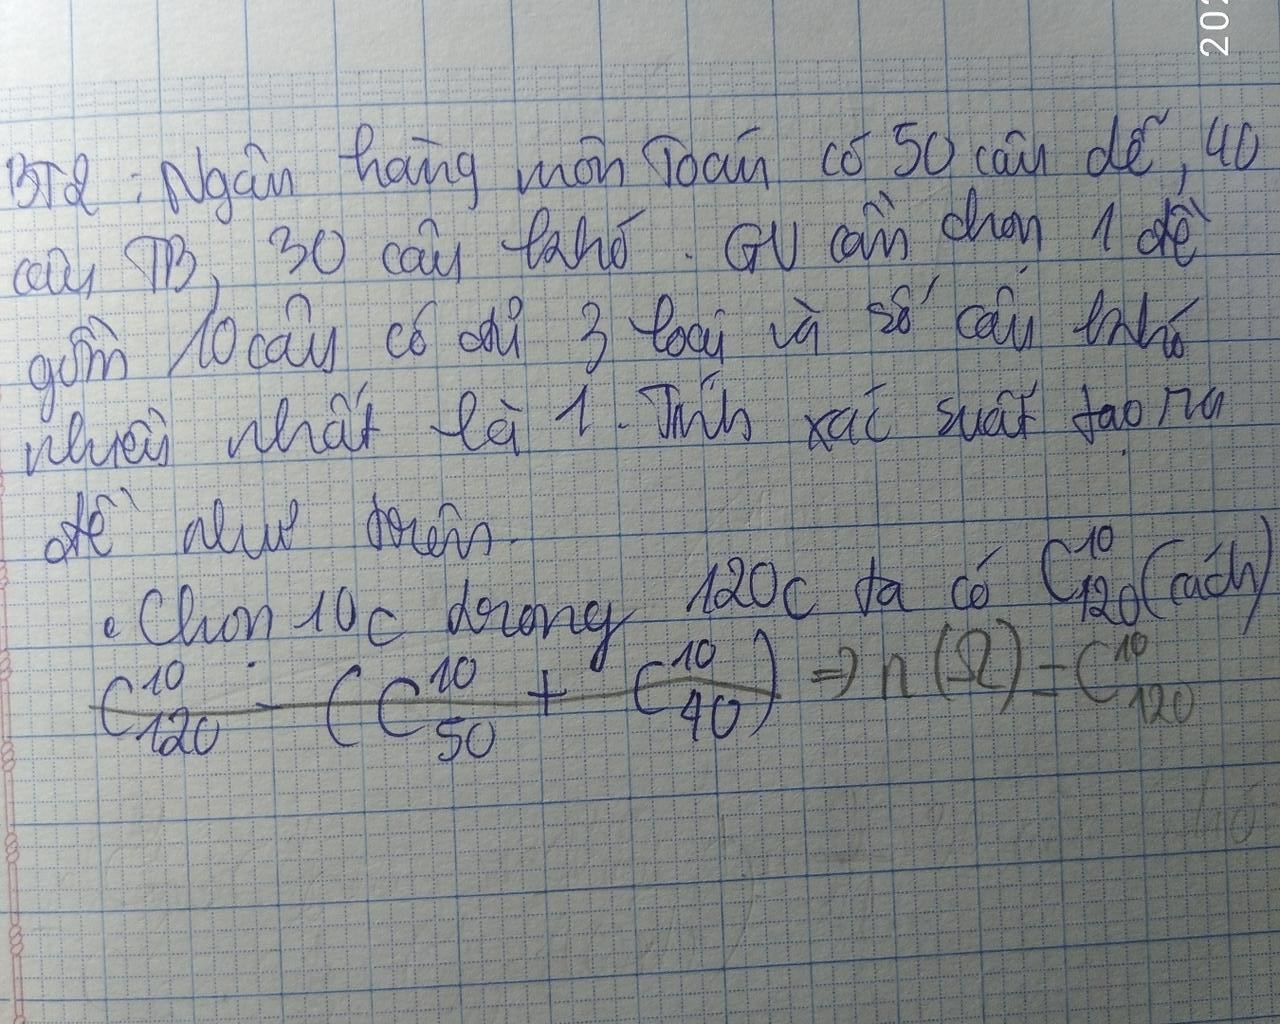 BT2 : Ngân hàng môn Toán có 50 câu dễ, 40
câu TB, 30 câu khó. GV cần chọn 1 đề
gồm 10 câu có đủ 3 loại và số câu khó
nhiều nhất là 1. Tính xác suất tạo ra
đề như trên.
• Chọn 10c trong 120c ta có C¹⁰₁₂₀ (cách)
C¹⁰₁₂₀ - (C¹⁰₅₀ + C¹⁰₄₀) ⇒ n(Ω) = C¹⁰₁₂₀
202